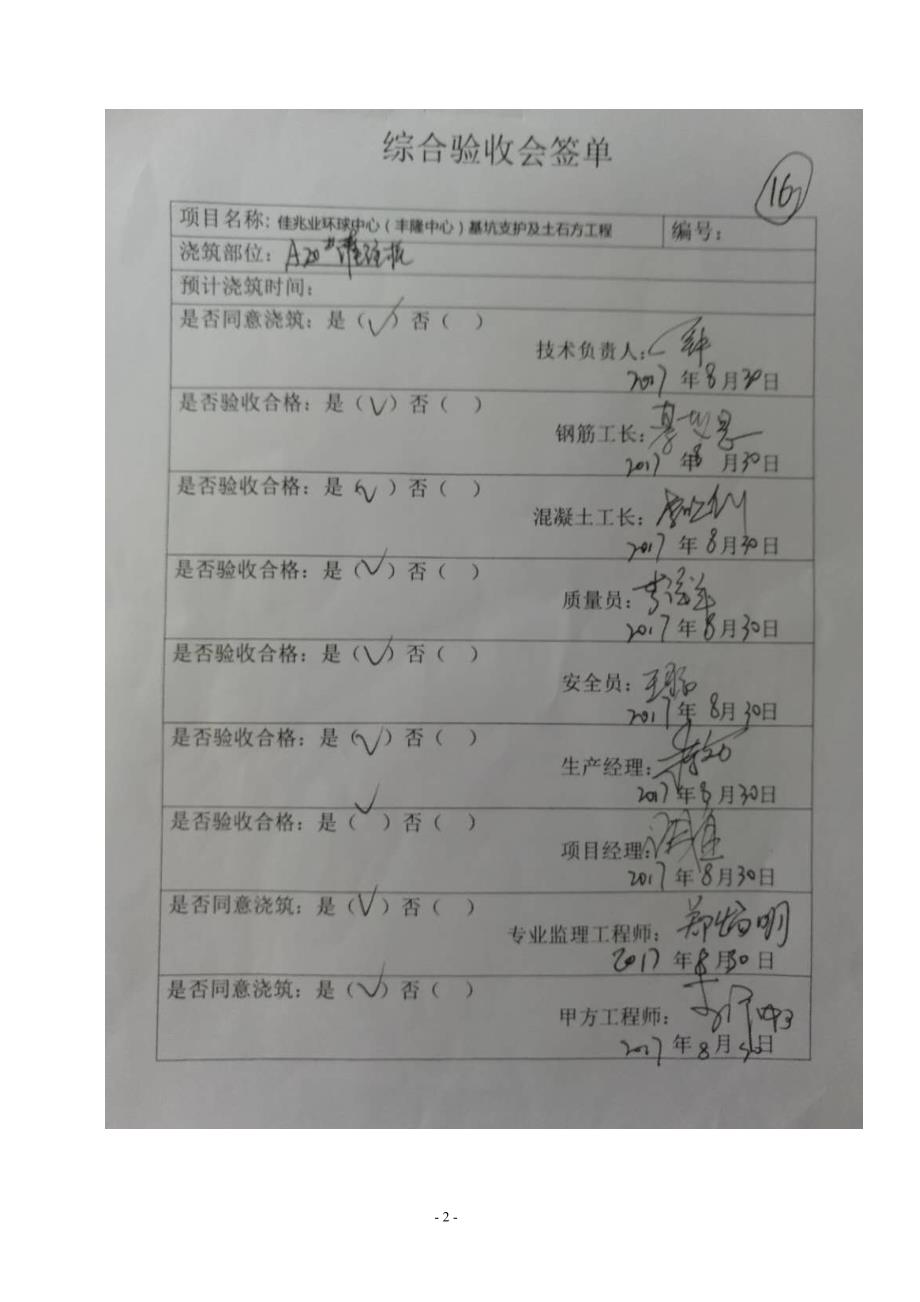 综合验收会签单
16
项目名称: 佳兆业环球中心（丰隆中心）基坑支护及土石方工程 编号：
浇筑部位： A20#
预计浇筑时间：
是否同意浇筑：是（√）否（ ）
技术负责人：
2017 年 8 月 30 日
是否验收合格：是（√）否（ ）
钢筋工长：
2017 年 8 月 30 日
是否验收合格：是（√）否（ ）
混凝土工长：
2017 年 8 月 30 日
是否验收合格：是（√）否（ ）
质量员：
2017 年 8 月 30 日
是否验收合格：是（√）否（ ）
安全员：
2017 年 8 月 30 日
是否验收合格：是（√）否（ ）
生产经理：
2017 年 8 月 30 日
是否验收合格：是（√）否（ ）
项目经理：
2017 年 8 月 30 日
是否同意浇筑：是（√）否（ ）
专业监理工程师： 郑
明
2017 年 8 月 30 日
是否同意浇筑：是（√）否（ ）
甲方工程师：
2017 年 8 月 30 日
- 2 -